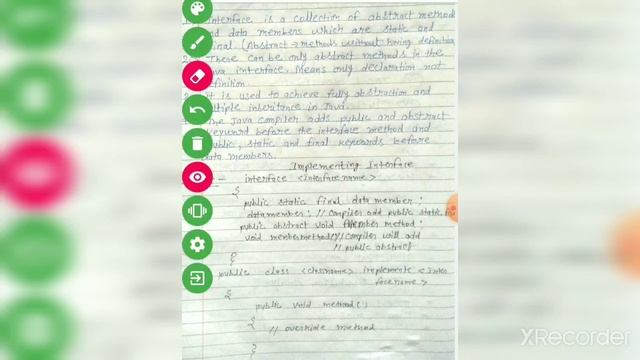 Interface is a collection of abstract method
and data members which are static and
final (Abstract → methods without having definition
There can be only abstract methods in the
Java interface. Means only declaration not
definition
It is used to achieve fully abstraction and
multiple inheritance in Java.
The Java compiler adds public and abstract
keyword before the interface method and
public, static and final keywords before
data members.
Implementing Interface
interface <interface name>
{
public static final data member;
data member; // compiler add public static
public abstract void member method;
void membermethod()// compiler will add
// public abstract
}
public class <classname> implements <inter
face name>
{
public void method()
{
// override method
}
XRecorder